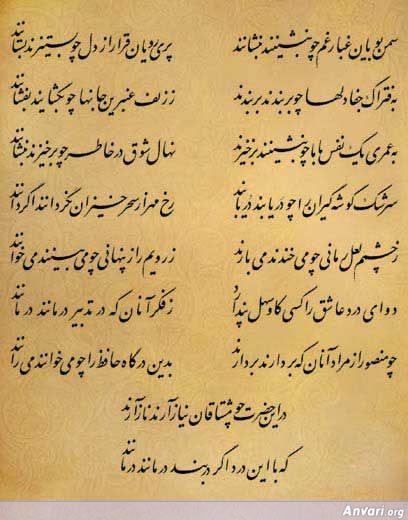 سمن بویان غبار غم چو بنشینند بنشانند پری رویان قرار از دل چو بستیزند بستانند
به فتراک جفا دلها چو بربندند بربندند ز زلف عنبرین جانها چو بگشایند بفشانند
به عمری یک نفس با ما چو بنشینند برخیزند نهال شوق در خاطر چو برخیزند بنشانند
سرشک گوشه گیران را چو دریابند در یابند رخ مهر از سحر خیزان نگردانند اگر دانند
ز چشمم لعل رمانی چو می خندند می بارند ز رویم راز پنهانی چو می بینند می خوانند
دوای درد عاشق را کسی کاو سهل پندارد ز فکر آنان که در تدبیر درمانند در مانند
چو منصور از مراد آنان که بردارند بر دارند بدین درگاه حافظ را چو می خوانند می رانند
در این حضرت چو مشتاقان نیاز آرند ناز آرند
که با این درد اگر دربند درمانند درمانند
Anvari.org